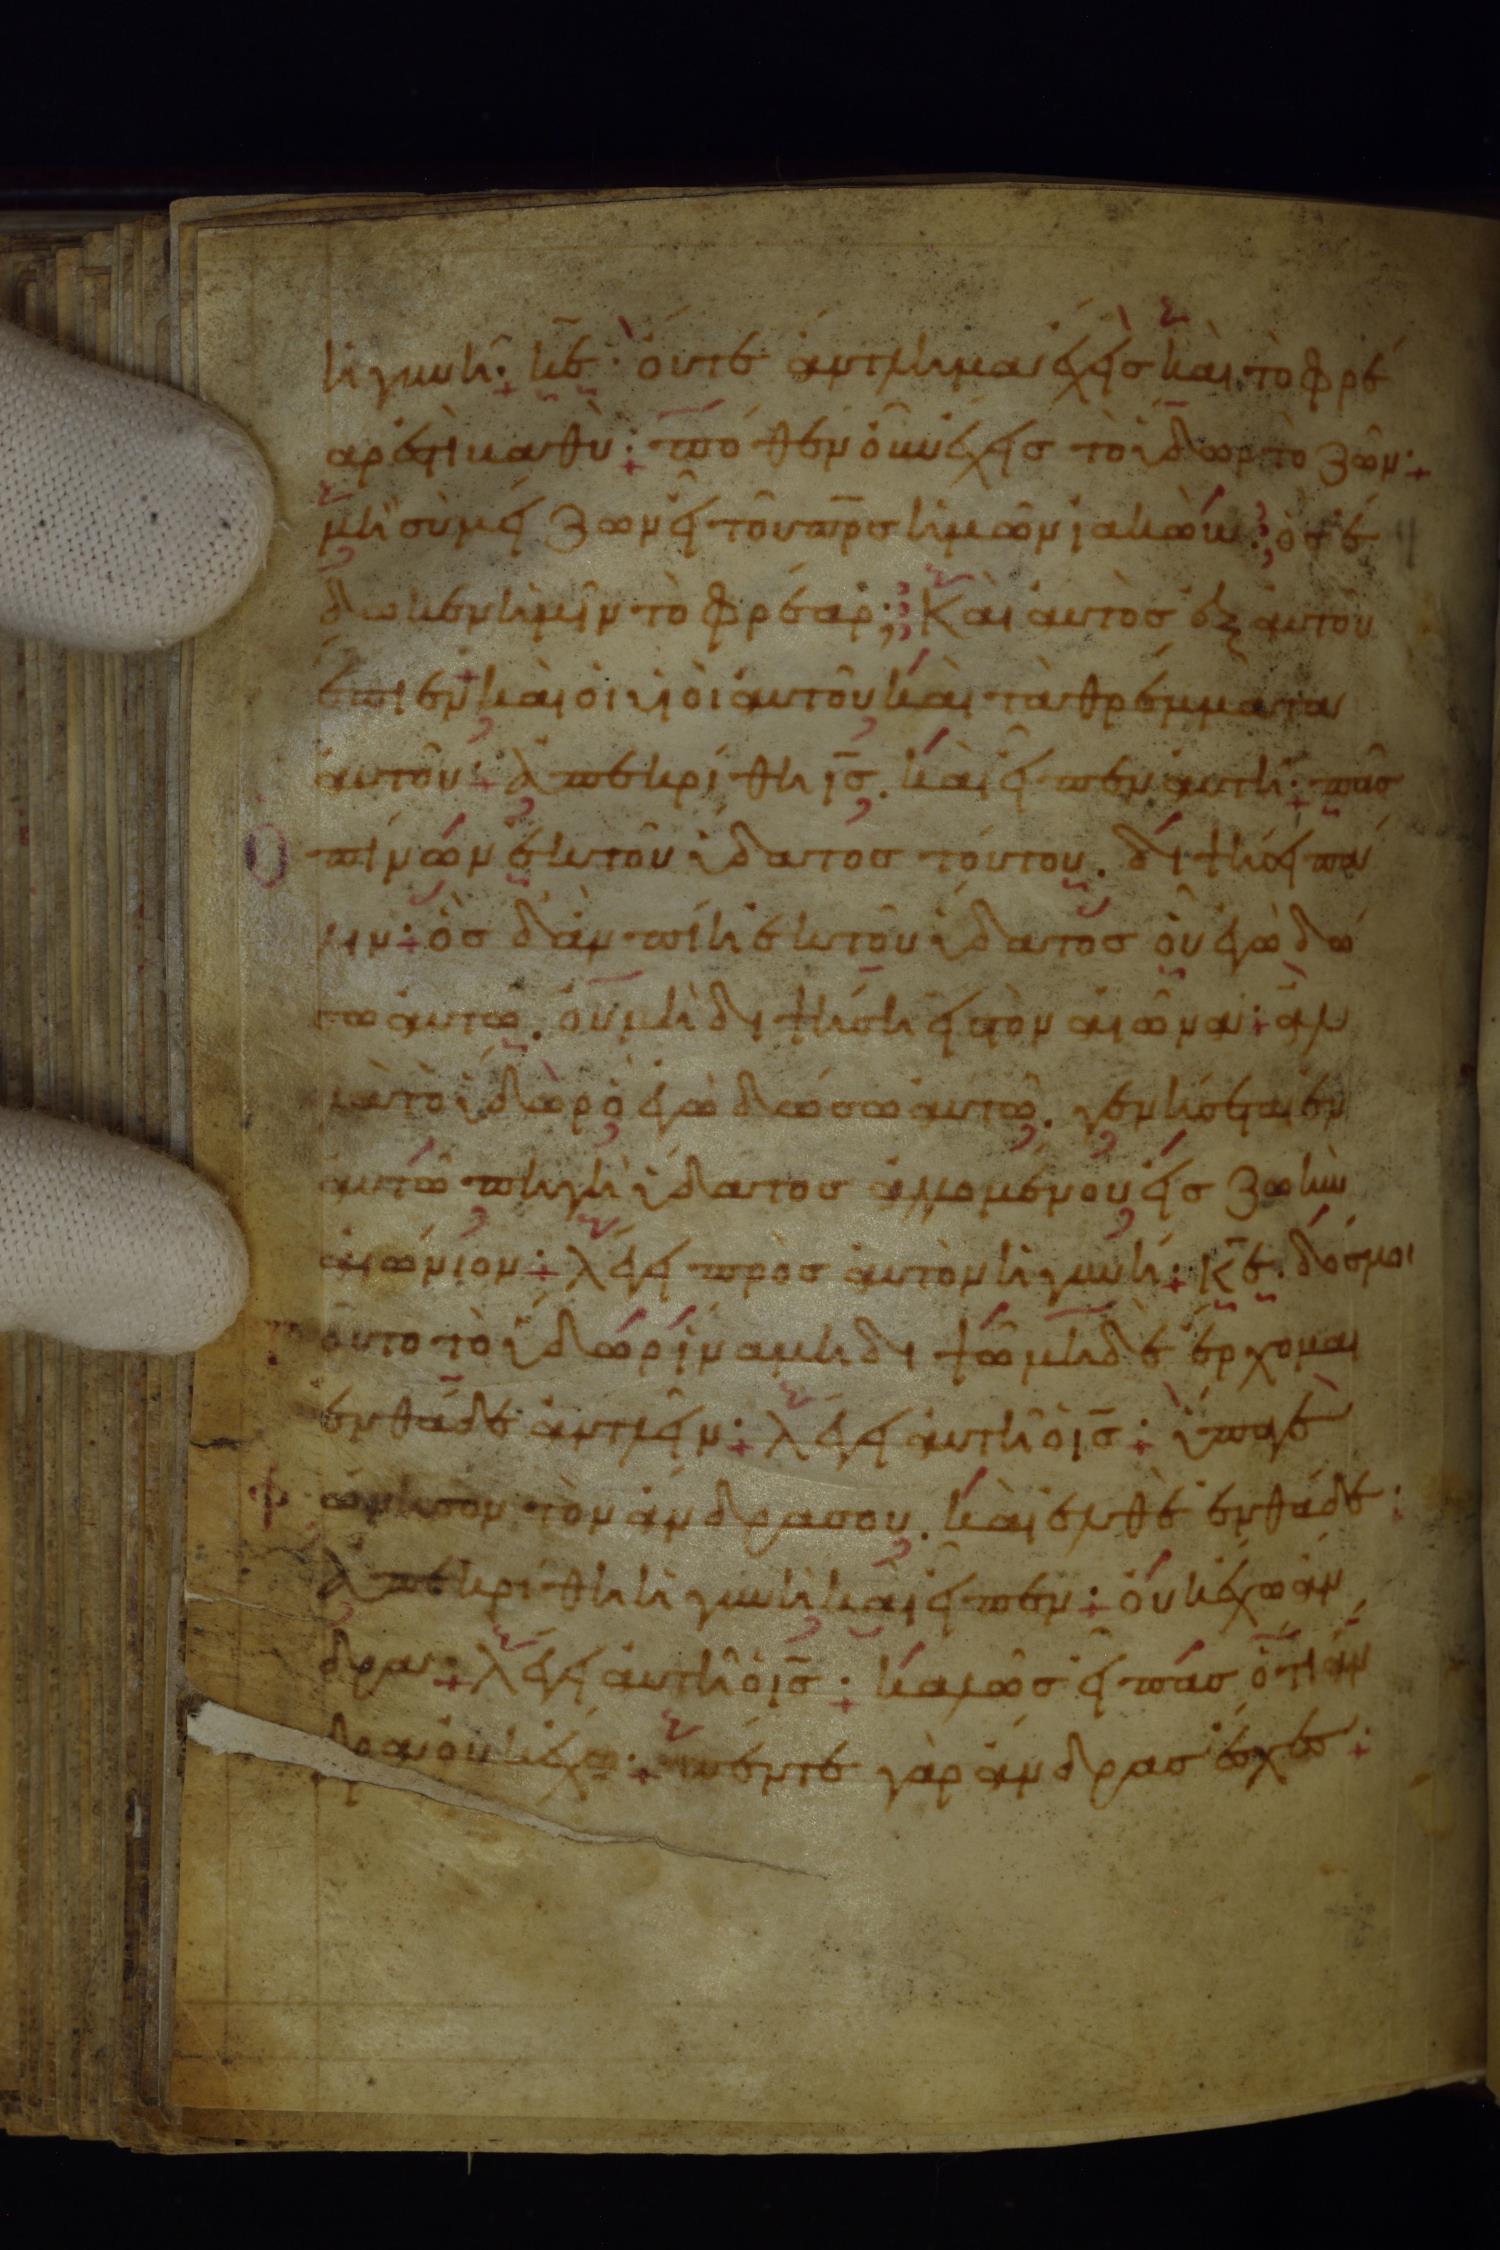 ἡ γυνή· κ̅ε̅· οὔτε ἄντλημα ἔχης καὶ τὸ φρέ
αρ ἐστὶ βαθύ· πόθεν οὖν ἔχης τὸ ὕδωρ τὸ ζῶν·
μὴ σὺ μεί ζων εἶ τοῦ π̅ρ̅ς ἡμῶν ἰακώβ· ὃς ἔ
δωκεν ἡμῖν τὸ φρέαρ· Καὶ αὐτὸς ἐξ αὐτοῦ
ἔπιεν καὶ οἱ υἱοὶ αὐτοῦ καὶ τὰ θρέμματα
αὐτοῦ· Ἀπεκρίθη ι̅ς̅. καὶ εἶπεν αὐτῆ· πᾶς
Ο πίνων ἐκ τοῦ ὕδατος τούτου. διψήσει πά
λιν· ὃς δ' ἂν πίη ἐκ τοῦ ὕδατος οὗ ἐγὼ δώ
σω αὐτῶ. οὐ μὴ διψήση εἰς τὸν αἰῶνα· ἀλ
λὰ τὸ ὕδωρ ὃ ἐγὼ δώσω αὐτῶ. γενήσεται ἐν
αὐτῶ πηγὴ ὕδατος ἁλλομένου εἰς ζωὴν
αἰώνιον· λέγει πρὸς αὐτὸν ἡ γυνή· κ̅ε̅. δός μοι
τοῦτο τὸ ὕδωρ ἵνα μὴ διψῶ μὴδὲ ἔρχομαι
ἐνθάδε ἀντλεῖν· λέγει αὐτῆ ὁ ι̅ς̅· ὕπαγε
φ ώνησον τὸν ἄνδρα σου. καὶ ἐλθὲ ἐνθάδε·
Ἀπεκρίθη ἡ γυνὴ καὶ εἶπεν· οὐκ ἔχω ἄν
δρα· λέγει αὐτῆ ὁ ι̅ς̅· καλῶς εἶπας ὅτι ἄν
δρα οὐκ ἔχω· πέντε γὰρ ἄνδρας ἔσχες·